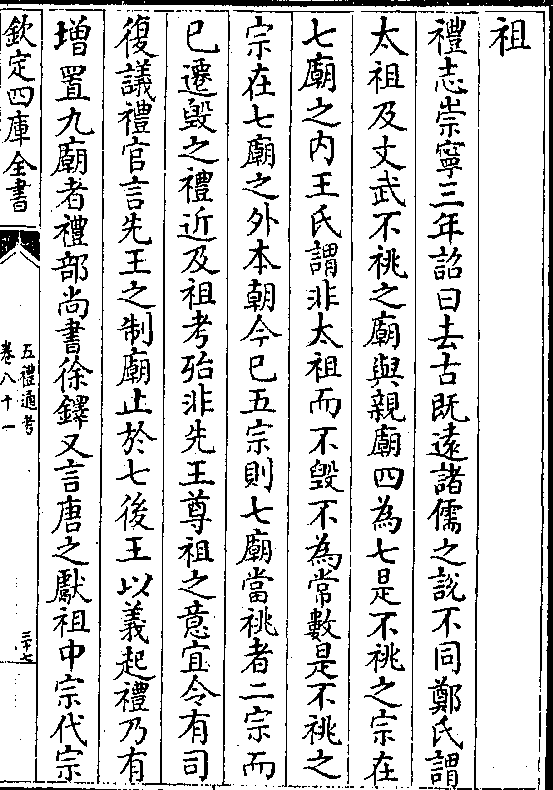 祖
禮志崇寧三年詔曰去古既遠諸儒之說不同鄭氏謂
太祖及文武不祧之廟與親廟四為七是不祧之宗在
七廟之内王氏謂非太祖而不毁不為常數是不祧之
宗在七廟之外本朝今已五宗則七廟當祧者二宗而
已遷毁之禮近及祖考殆非先王尊祖之意宜令有司
復議禮官言先王之制廟止於七後王以義起禮乃有
增置九廟者禮部尚書徐鐸又言唐之獻祖中宗代宗
欽定四庫全書
五禮通考
卷八十一
三十七